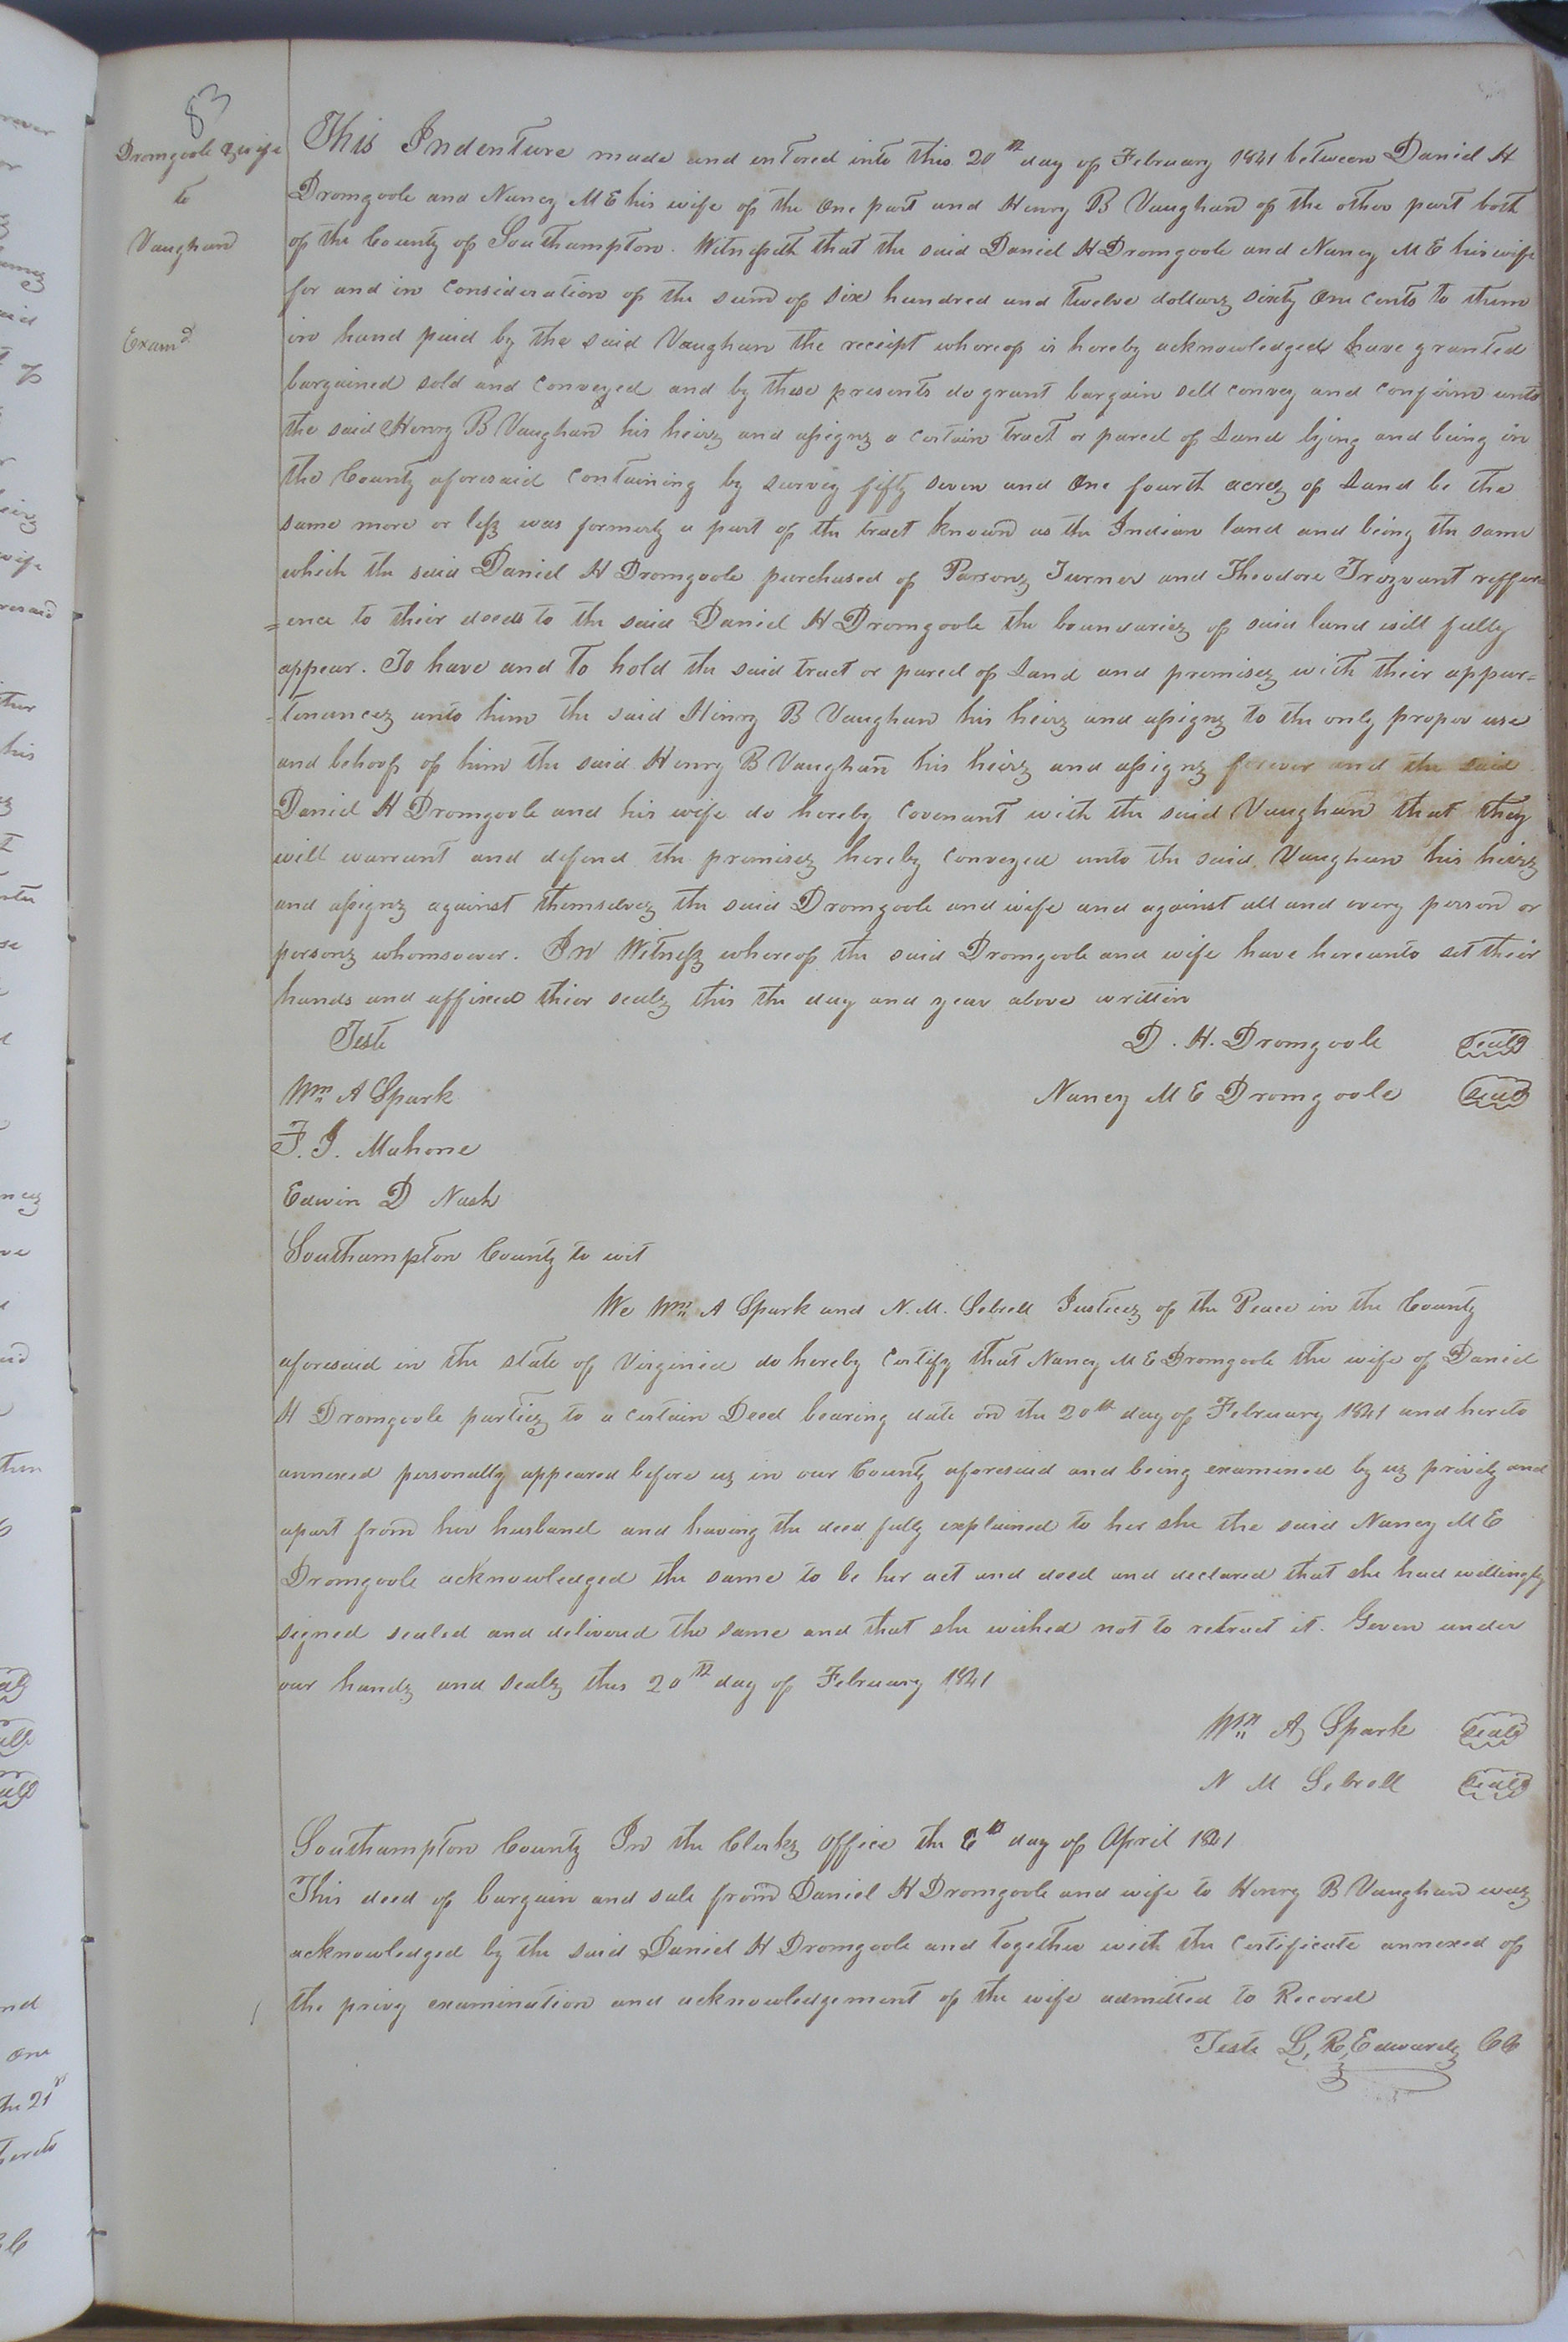 83
Dromgoole & wife
to
Vaughan
Examd
This Indenture made and entered into this 20th day of February 1841 between Daniel H
Dromgoole and Nancy M E his wife of the one part and Henry B Vaughan of the other part both
of the County of Southampton. Witnesseth that the said Daniel H Dromgoole and Nancy M E his wife
for and in consideration of the sum of six hundred and twelve dollars sixty one cents to them
in hand paid by the said Vaughan the receipt whereof is hereby acknowledged have granted
bargained sold and conveyed and by these presents do grant bargain sell convey and confirm unto
the said Henry B Vaughan his heirs and assigns a certain tract or parcel of Land lying and being in
the County aforesaid containing by survey fifty seven and one fourth acres of Land be the
same more or less was formerly a part of the tract known as the Indian land and being the same
which the said Daniel H Dromgoole purchased of Parsons Turner and Theodore Trezvant reffer
=ence to their deeds to the said Daniel H Dromgoole the boundaries of said land will fully
appear. To have and to hold the said tract or parcel of Land and premises with their appur=
=tenances unto him the said Henry B Vaughan his heirs and assigns to the only proper use
and behoof of him the said Henry B Vaughan his heirs and assigns forever and the said
Daniel H Dromgoole and his wife do hereby covenant with the said Vaughan that they
will warrant and defend the premises hereby conveyed unto the said Vaughan his heirs
and assigns against themselves the said Dromgoole and wife and against all and every person or
persons whomsoever. In Witness whereof the said Dromgoole and wife have hereunto set their
hands and affixed their seals this the day and year above written
Teste D. H. Dromgoole seal
Wm A Spark Nancy M E Dromgoole seal
F. J. Mahone
Edwin D Nash
Southampton County to wit
We Wm A Spark and N. M. Sebrell Justices of the Peace in the County
aforesaid in the state of Virginia do hereby certify that Nancy M E Dromgoole the wife of Daniel
H Dromgoole parties to a certain Deed bearing date on the 20th day of February 1841 and hereto
annexed personally appeared before us in our County aforesaid and being examined by us privily and
apart from her husband and having the deed fully explained to her she the said Nancy M E
Dromgoole acknowledged the same to be her act and deed and declared that she had willingly
signed sealed and delivered the same and that she wished not to retract it. Given under
our hands and seals this 20th day of February 1841
Wm A Spark seal
N M Sebrell seal
Southampton County In the Clerks office the day of April 1841
This deed of bargain and sale from Daniel H Dromgoole and wife to Henry B Vaughan was
acknowledged by the said Daniel H Dromgoole and together with the certificate annexed of
the privy examination and acknowledgement of the wife admitted to Record
Teste L, R, Edwards CC